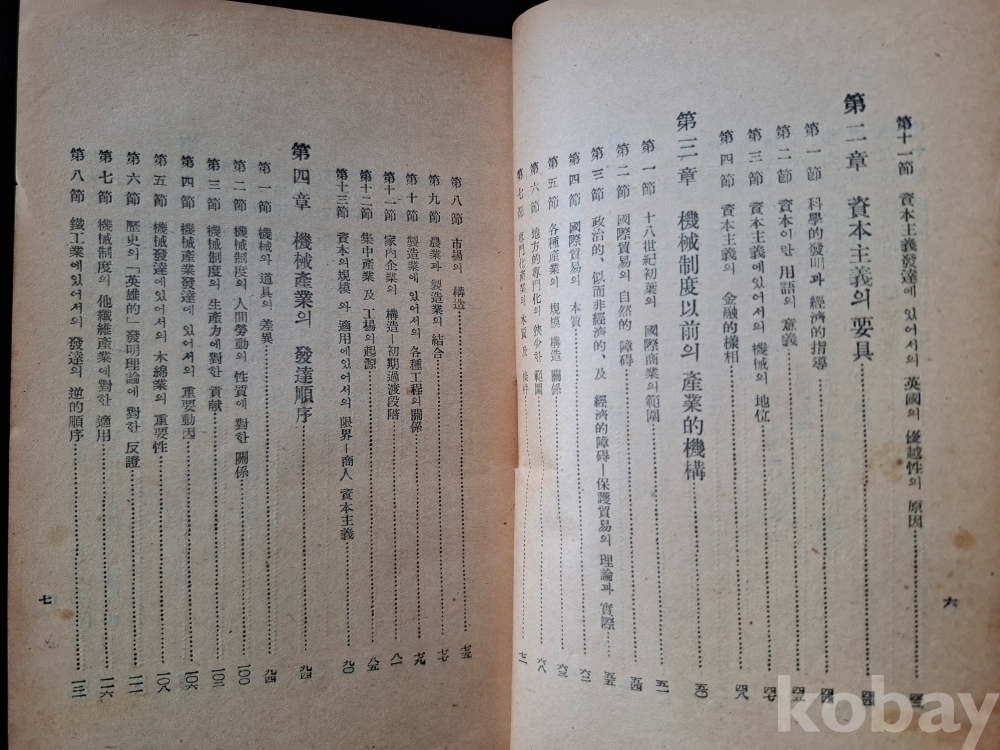 第十一節 資本主義發達에 있어서의 英國의 優越性의 原因
第二章 資本主義의 要具
第一節 科學的發明과 經濟的指導
第二節 資本이란 用語의 意義
第三節 資本主義에있어서의 機械의 地位
第四節 資本主義의 金融的樣相
第三章 機械制度以前의 產業的機構 五〇
第一節 十八世紀初葉의 國際商業의範圍 五一
第二節 國際貿易의 自然的 障碍 五四
第三節 政治的, 似而非經濟的, 及 經濟的障碍—保護貿易의 理論과 實際 五五
第四節 國際貿易의 本質 六二
第五節 各種產業의 規模 構造 關係 六三
第六節 地方的專門化의 狹少한 範圍 六八
第七節 專門化產業의 本質 及 條件 七一
六
第八節 市場의 構造 七五
第九節 農業과 製造業의 結合 七七
第十節 製造業에 있어서의 各種工程의關係 七九
第十一節 家內企業의 構造—初期過渡段階 八一
第十二節 集中產業 及 工場의起源 八五
第十三節 資本의規模 와 適用에있어서의 限界—商人 資本主義 九〇
第四章 機械產業의 發達順序 九四
第一節 機械와 道具의 差異 九四
第二節 機械制度의 人間勞動의 性質에 對한 關係 一〇〇
第三節 機械制度의 生產力에對한 貢献 一〇三
第四節 機械產業發達에 있어서의 重要動因 一〇六
第五節 機械發達에있어서의 木綿業의 重要性 一〇八
第六節 歷史의「英雄的」發明理論에 對한 反證 一一一
第七節 機械制度의 他纖維產業에對한 適用 一一六
第八節 鐵工業에있어서의 發達의 逆的順序 一二一
七
kobay